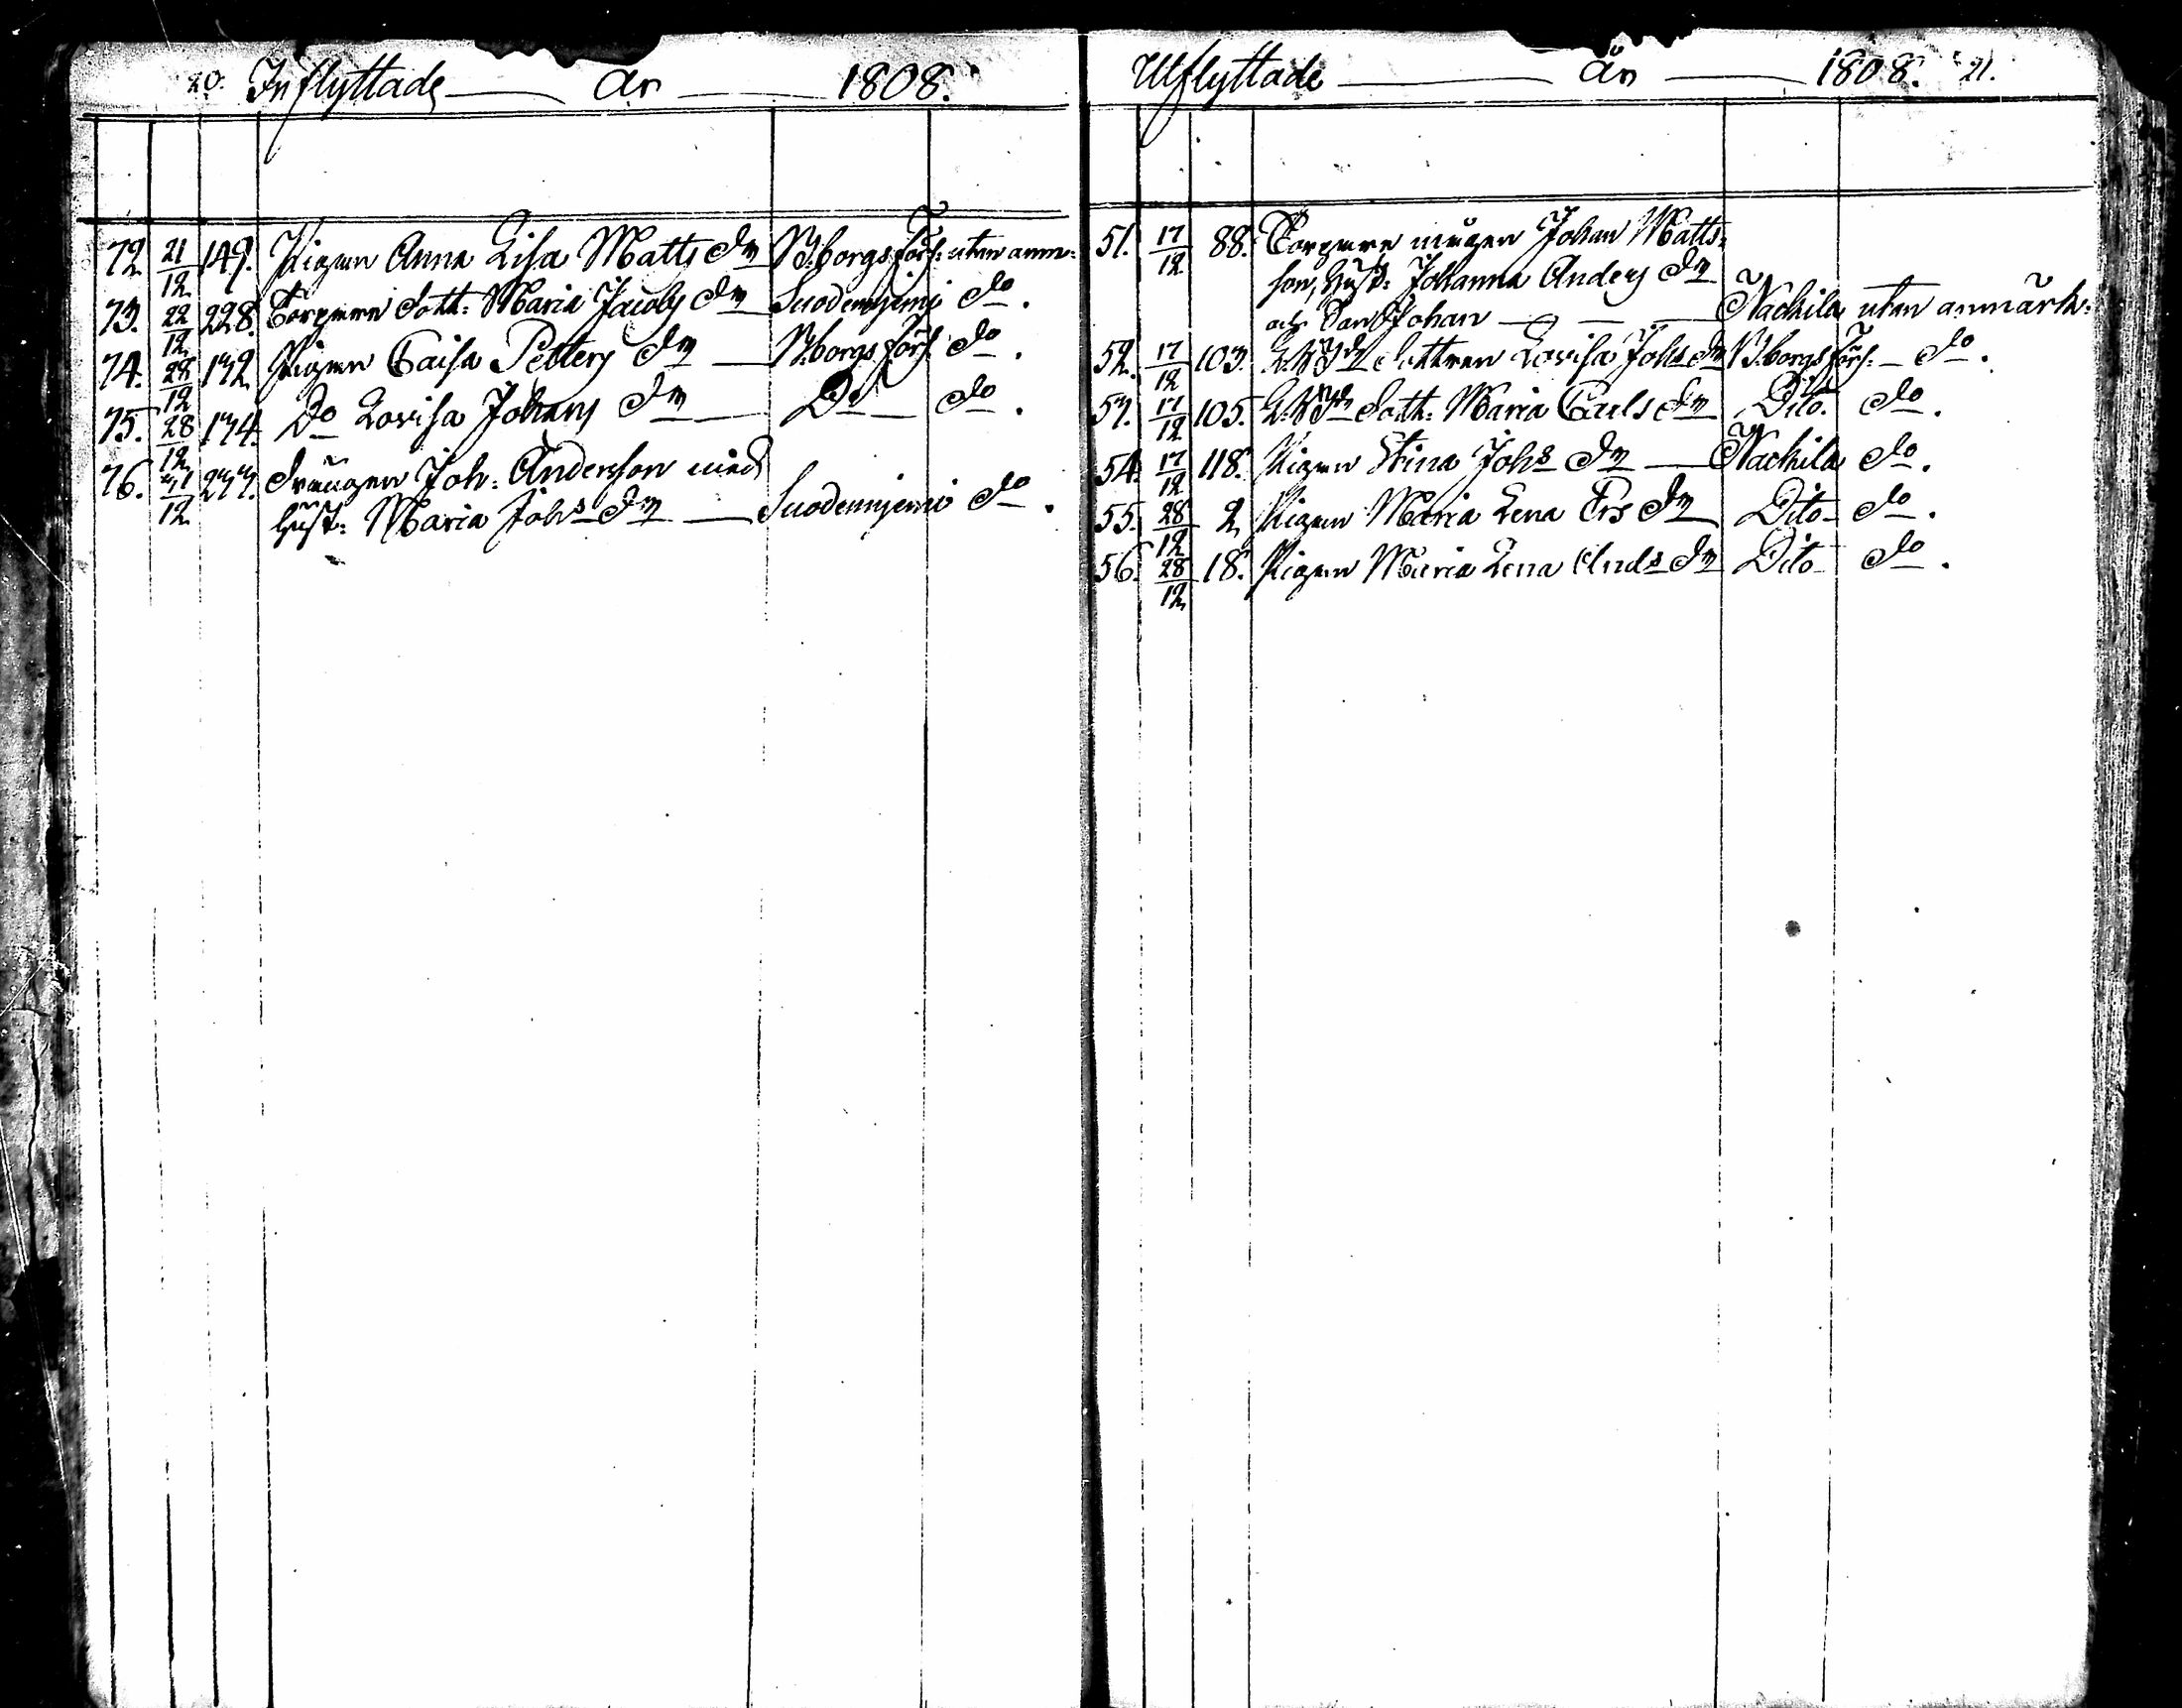 20. Inflyttade år 1808.
72. 21/12 149. Pigan Anna Lisa Matts dr B:borgs förs: utan anm:
73. 22/12 228. Torpare doth: Maria Jacobs dr Suodenniemi do.
74. 28/12 132 Pigan Caisa Petters dr B:borgs förs: do.
75. 28/12 134. Do Lovisa Johans dr Do do.
76. 31/12 233. Drängen Joh: Andersson med
hust: Maria Johs dr Suodenniemi do.
Utflyttade år 1808. 21.
51. 17/12 88. Torpare mågen Johan Matts-
son, Hust: Johanna Anders dr
och Son Johan Nackila utan anmärk:
52. 17/12 103. dottren Lovisa Johs dr B:borgs förs: do.
53. 17/12 105. doth: Maria Carls dr Dito do.
54. 17/12 118. Pigan Stina Johs dr Nackila do.
55. 28/12 2 Pigan Maria Lena Ers dr Dito do.
56. 28/12 18. Pigan Maria Lena Ands dr Dito do.